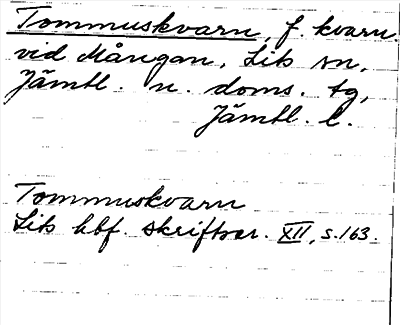 Tommuskvarn, f. kvarn
vid Mångan, Lits sn,
Jämtl. n. doms. tg,
Jämtl. l.
Tommuskvarn
Lits hbf. skriftser. XII, s. 163.